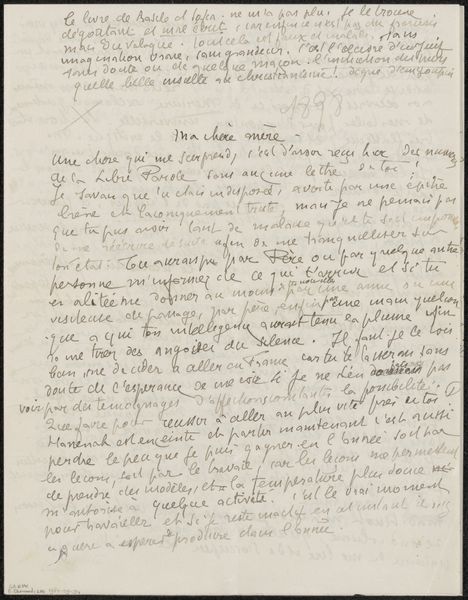 le livre de Basile et Sofia ne m'a pas plu, je le trouve
dégoûtant et
mais du vulgaire. Tout cela est faux et malade, sans
imagination vraie, sans grandeur. C'est l'œuvre d'un juif
sans doute ou de quelque maçon. L'initiation des
quelle belle insulte au christianisme!
1898
Ma chère mère
Une chose qui me surprend, c'est d'avoir reçu hier des numéros
de la Libre Parole sans aucune lettre de toi!
Je savais que tu étais indisposée, averti par une épître
brève et laconiquement triste, mais je ne pensais pas
que tu pus avoir tant de malaise qu'il te soit impossible
de me récrire de suite afin de me tranquilliser sur
ton état. Tu aurais pu par Père ou par quelque autre
personne m'informer de ce qui t'arrive et si tu
es alitée me donner au moins par une amie ou une
visiteuse de passage, par père, enfin par une main quelconque
à qui ton intelligence aurait tenu la plume afin
de me tirer des angoisses du silence. Il faut je le vois
bien me décider à aller en France car tu te lasserais sans
doute de l'espérance de me voir si je ne t'en donnais pas
voir par des témoignages d'affection constants la possibilité.
Que faire pour réussir à aller au plus vite près de toi?
Hanenah est enceinte et partir maintenant c'est aussi
perdre le peu que je puis gagner en l'année soit par
les leçons, soit par le travail, car les leçons me permettent
de prendre des modèles, et la température plus douce
m'autorise à quelque activité. C'est le vrai moment
pour travailler et si je reste inactif en ce moment je n'ai
guère à espérer produire dans l'année.